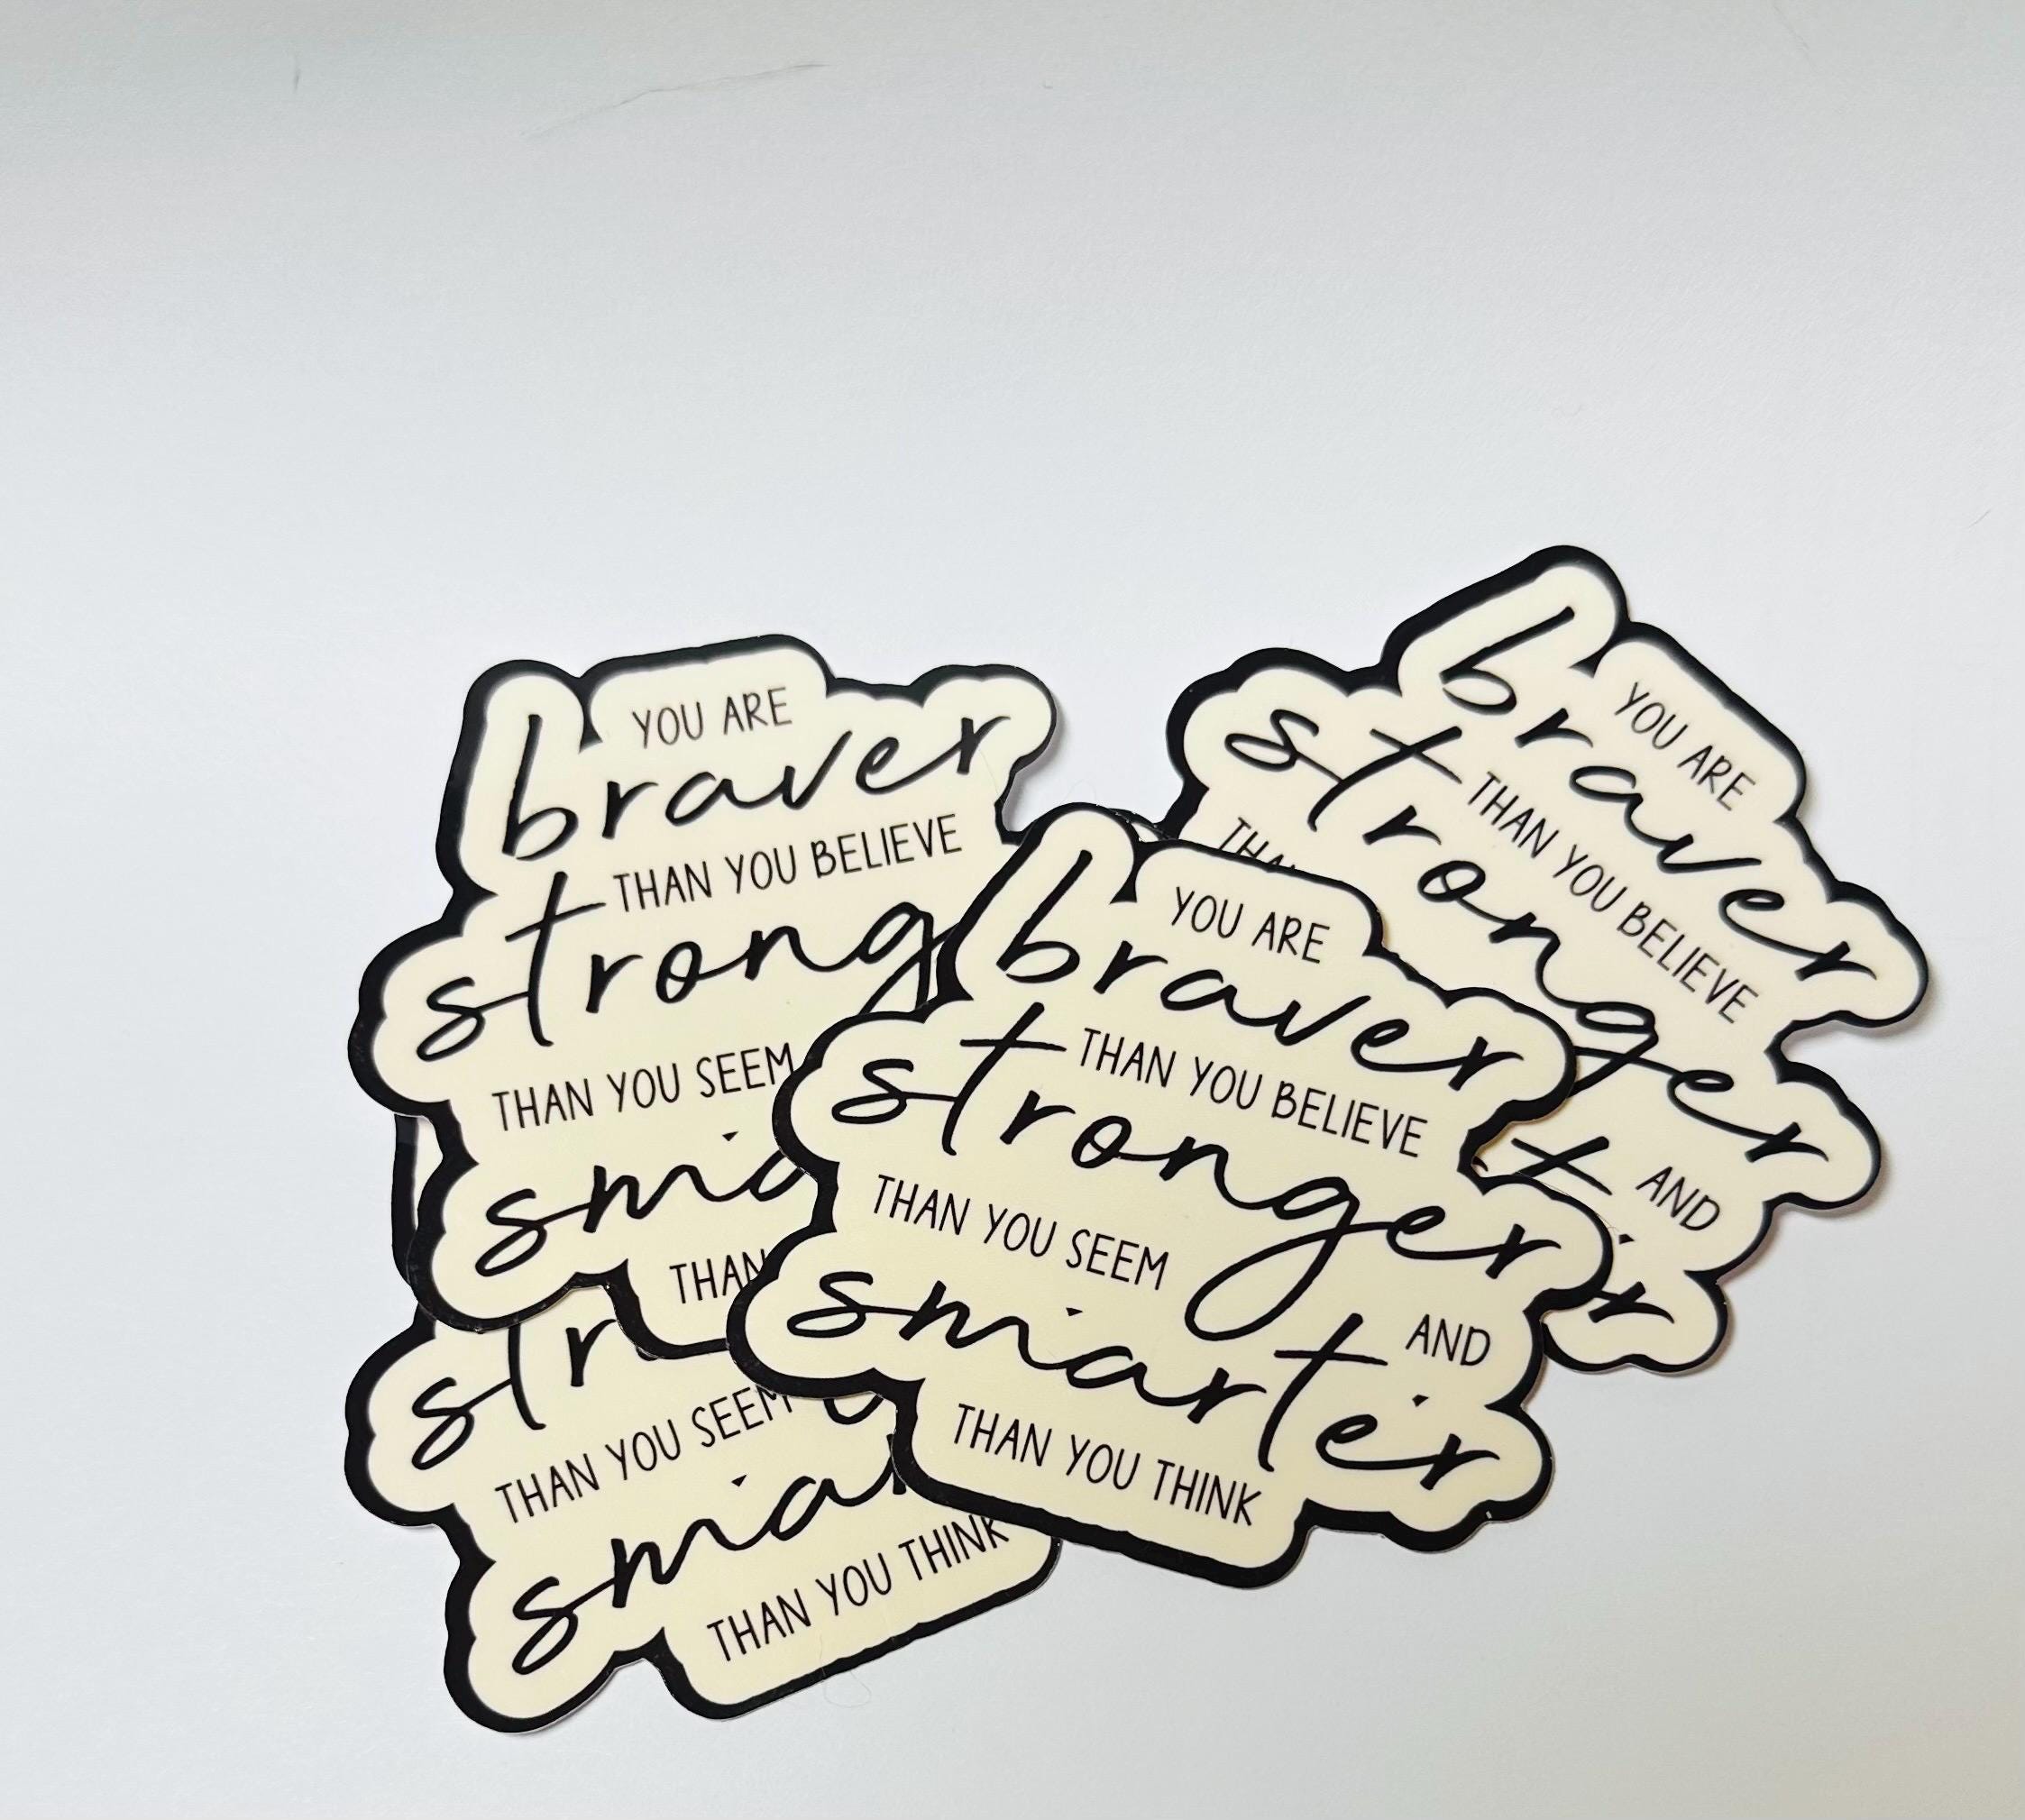 YOU ARE
braver
THAN YOU BELIEVE
strong
THAN YOU SEEM
sma
THAN
str
THAN YOU SEEM
smar
THAN YOU THINK
YOU ARE
braver
THAN YOU BELIEVE
stronger
THAN YOU SEEM
AND
smarter
THAN YOU THINK
YOU ARE
braver
THAN YOU BELIEVE
stronger
THA
AND
r